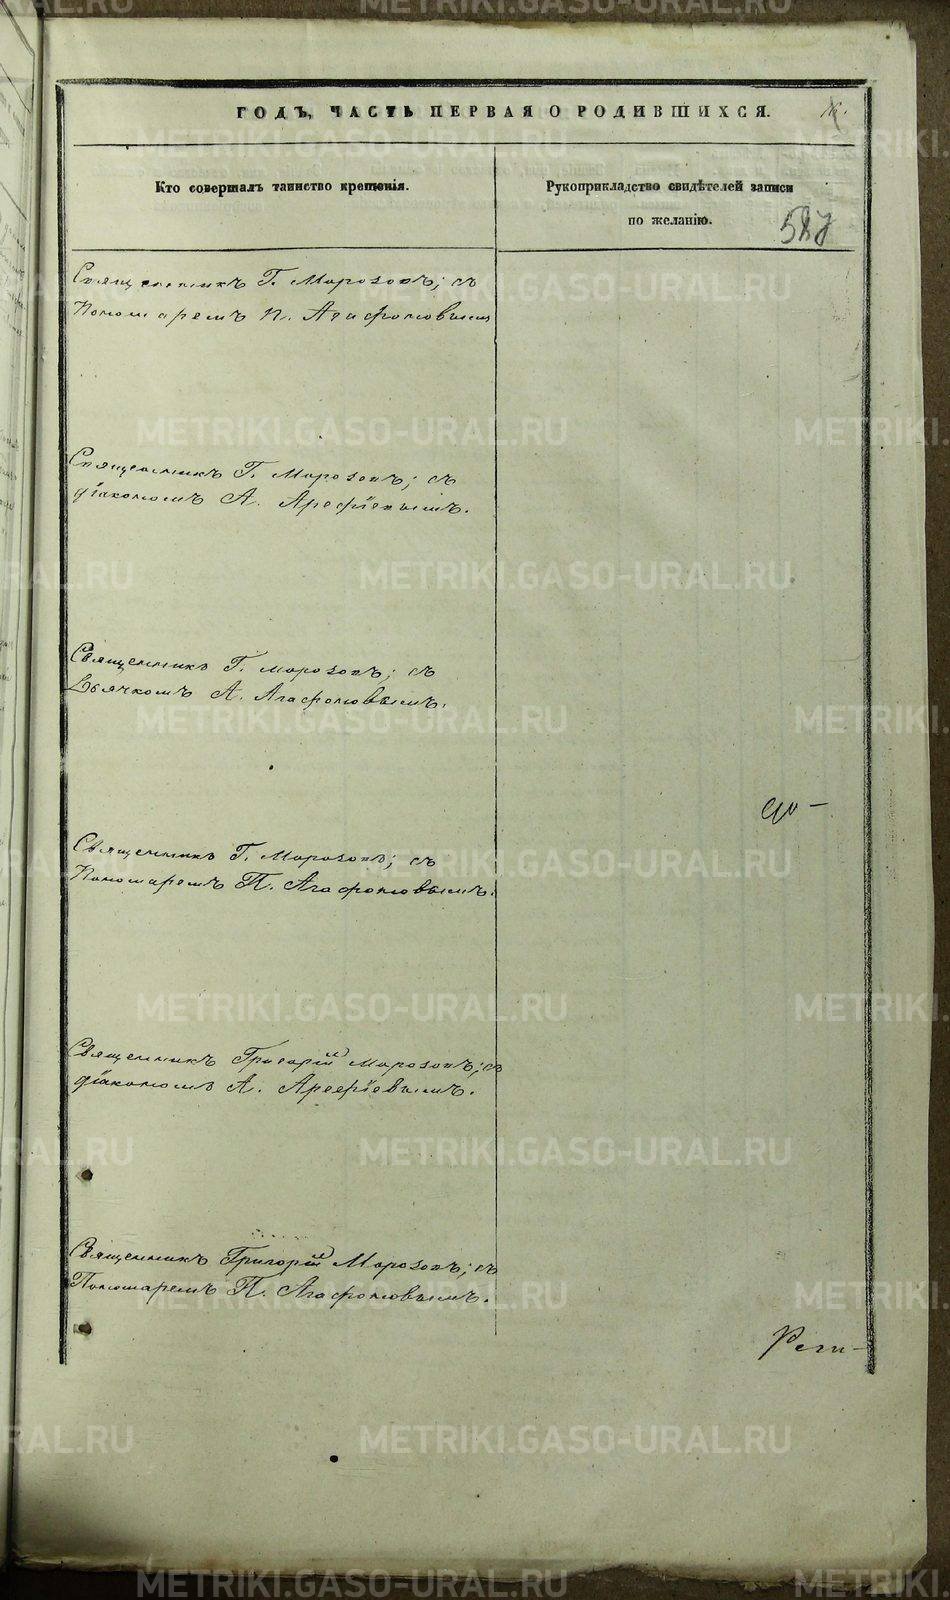 ГОДЪ, ЧАСТЬ ПЕРВАЯ О РОДИВШИХСЯ.
Кто совершалъ таинство крещенія.
Рукоприкладство свидѣтелей записи
по желанію.
Священникъ Г. Морозовъ; съ
Пономаремъ П. Агафоновымъ
Священникъ Г. Морозовъ; съ
діакономъ А. Арефіевымъ.
Священникъ Г. Морозовъ; съ
Дьячкомъ А. Агафоновымъ.
Священникъ Г. Морозовъ; съ
Пономаремъ П. Агафоновымъ.
Священникъ Григорій Морозовъ; съ
діакономъ А. Арефіевымъ.
Священникъ Григорій Морозовъ; съ
Пономаремъ П. Агафоновымъ.
METRIKI.GASO-URAL.RU